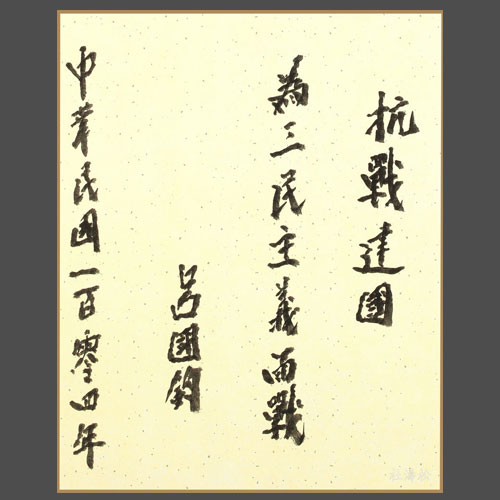 抗戰建國
為三民主義而戰
呂國鈞
中華民國一百零四年